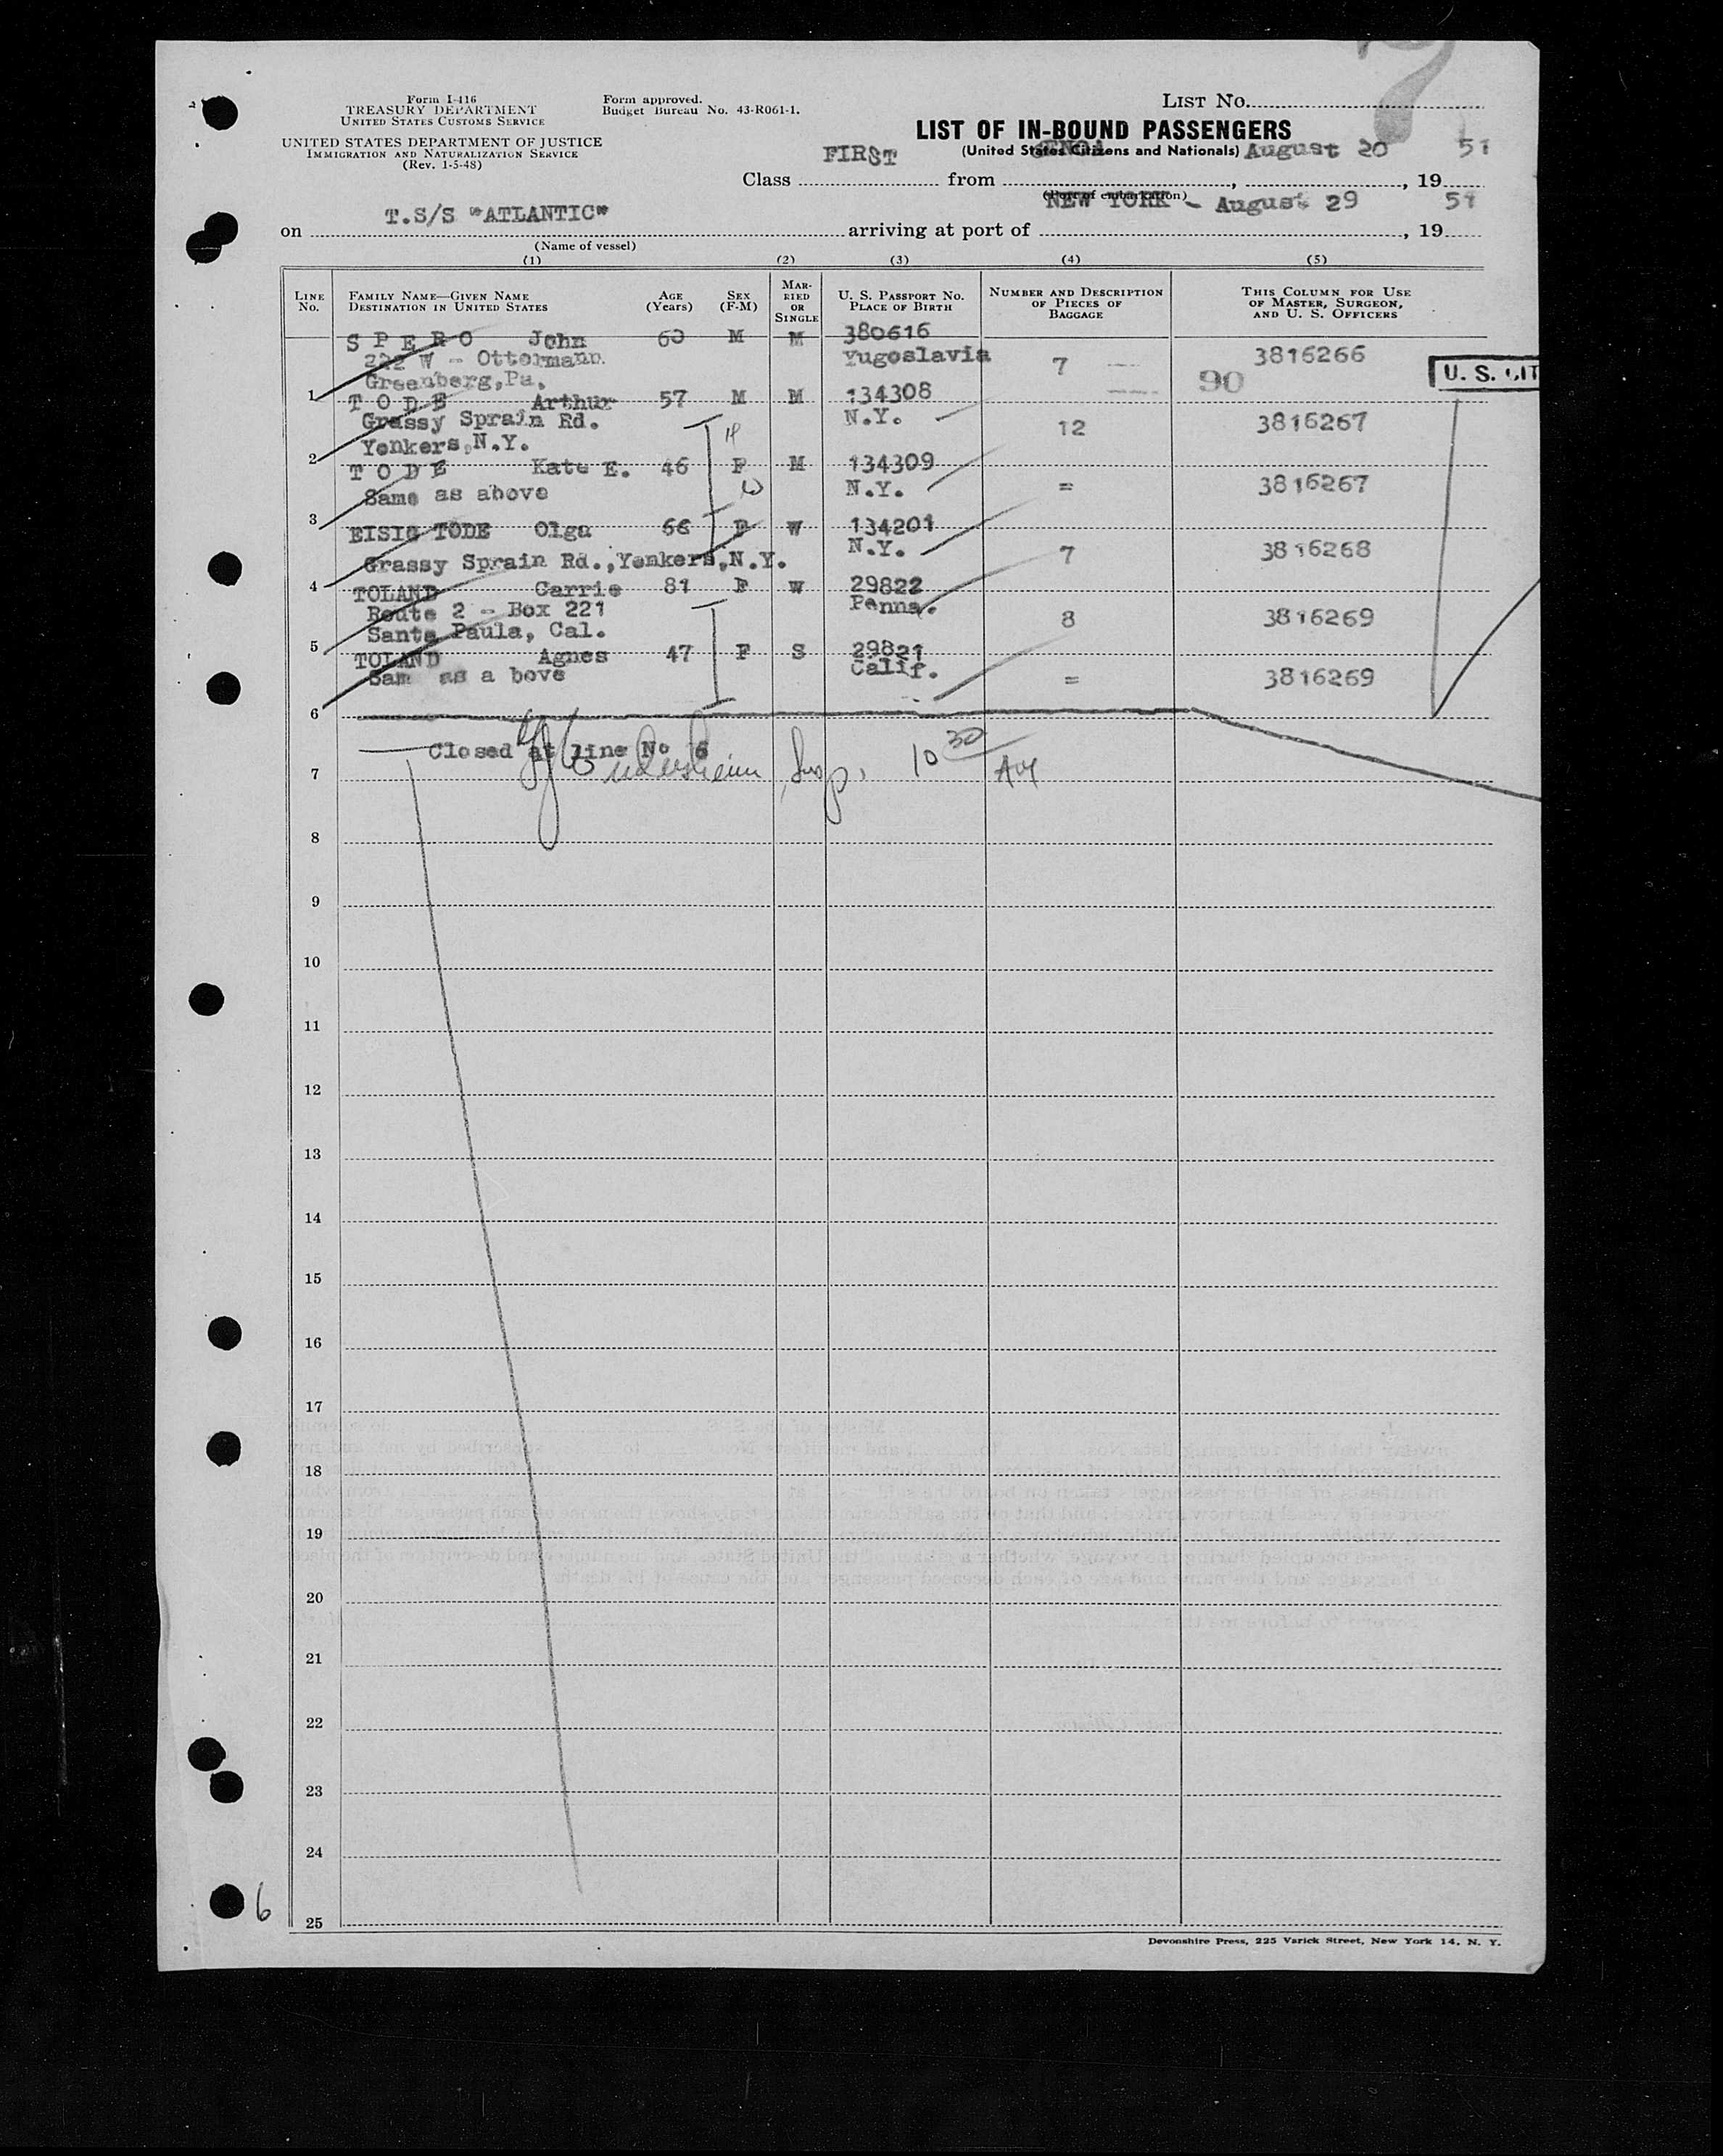 Form I-416
TREASURY DEPARTMENT
UNITED STATES CUSTOMS SERVICE
UNITED STATES DEPARTMENT OF JUSTICE
IMMIGRATION AND NATURALIZATION SERVICE
(Rev. 1-5-48)
Form approved.
Budget Bureau No. 43-R061-1.
LIST No.
7
LIST OF IN-BOUND PASSENGERS
(United States Citizens and Nationals)
Class FIRST from GENOA, August 20, 1951
(Port of embarkation)
on T.S/S "ATLANTIC" arriving at port of NEW YORK - August 29, 1951
(Name of vessel)
(1) (2) (3) (4) (5)
LINE No. FAMILY NAME—GIVEN NAME DESTINATION IN UNITED STATES AGE (Years) SEX (F-M) MARRIED OR SINGLE U. S. PASSPORT No. PLACE OF BIRTH NUMBER AND DESCRIPTION OF PIECES OF BAGGAGE THIS COLUMN FOR USE OF MASTER, SURGEON, AND U. S. OFFICERS
S P E R O John 60 M M 380616
222 W - Ottermann Yugoslavia 7 3816266
Greenberg,Pa. 90 U. S. CIT
1 T O D E Arthur 57 M M 134308
Grassy Sprain Rd. N.Y. 12 3816267
Yonkers,N.Y. H
2 T O D E Kate E. 46 F M 134309
Same as above W N.Y. = 3816267
3 EISIG TODE Olga 66 F W 134201
Grassy Sprain Rd.,Yonkers,N.Y. N.Y. 7 3816268
4 TOLAND Carrie 81 F W 29822
Route 2 - Box 221 Penna. 8 3816269
Santa Paula, Cal.
5 TOLAND Agnes 47 F S 29821
Sam as a bove Calif. = 3816269
6
Closed at line No 6
7 Insp. 10 30 AM
8
9
10
11
12
13
14
15
16
17
18
19
20
21
22
23
24
25
6
Devonshire Press, 225 Varick Street, New York 14, N. Y.